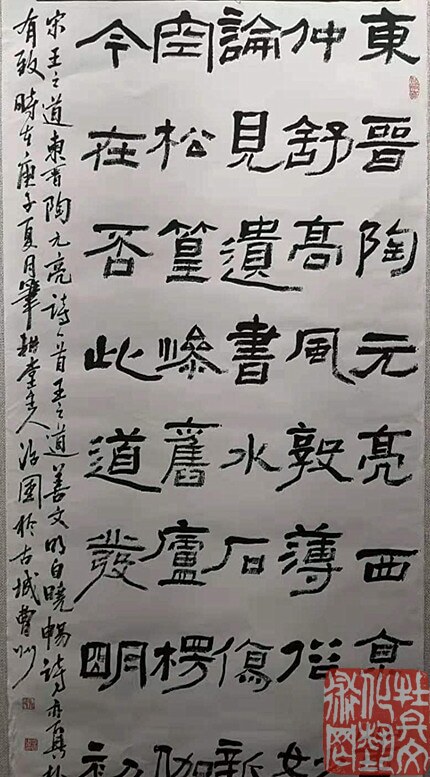 東晉陶元亮西京
仲舒高風敦薄俗妙
論見遺書水石傷新
空松篁慘舊廬楞伽
今在否此道發明初
宋王之道東晉陶元亮詩一首王之道善文明白曉暢詩亦真朴
有致時在庚子夏月筆耕堂主人治國於古城曹州